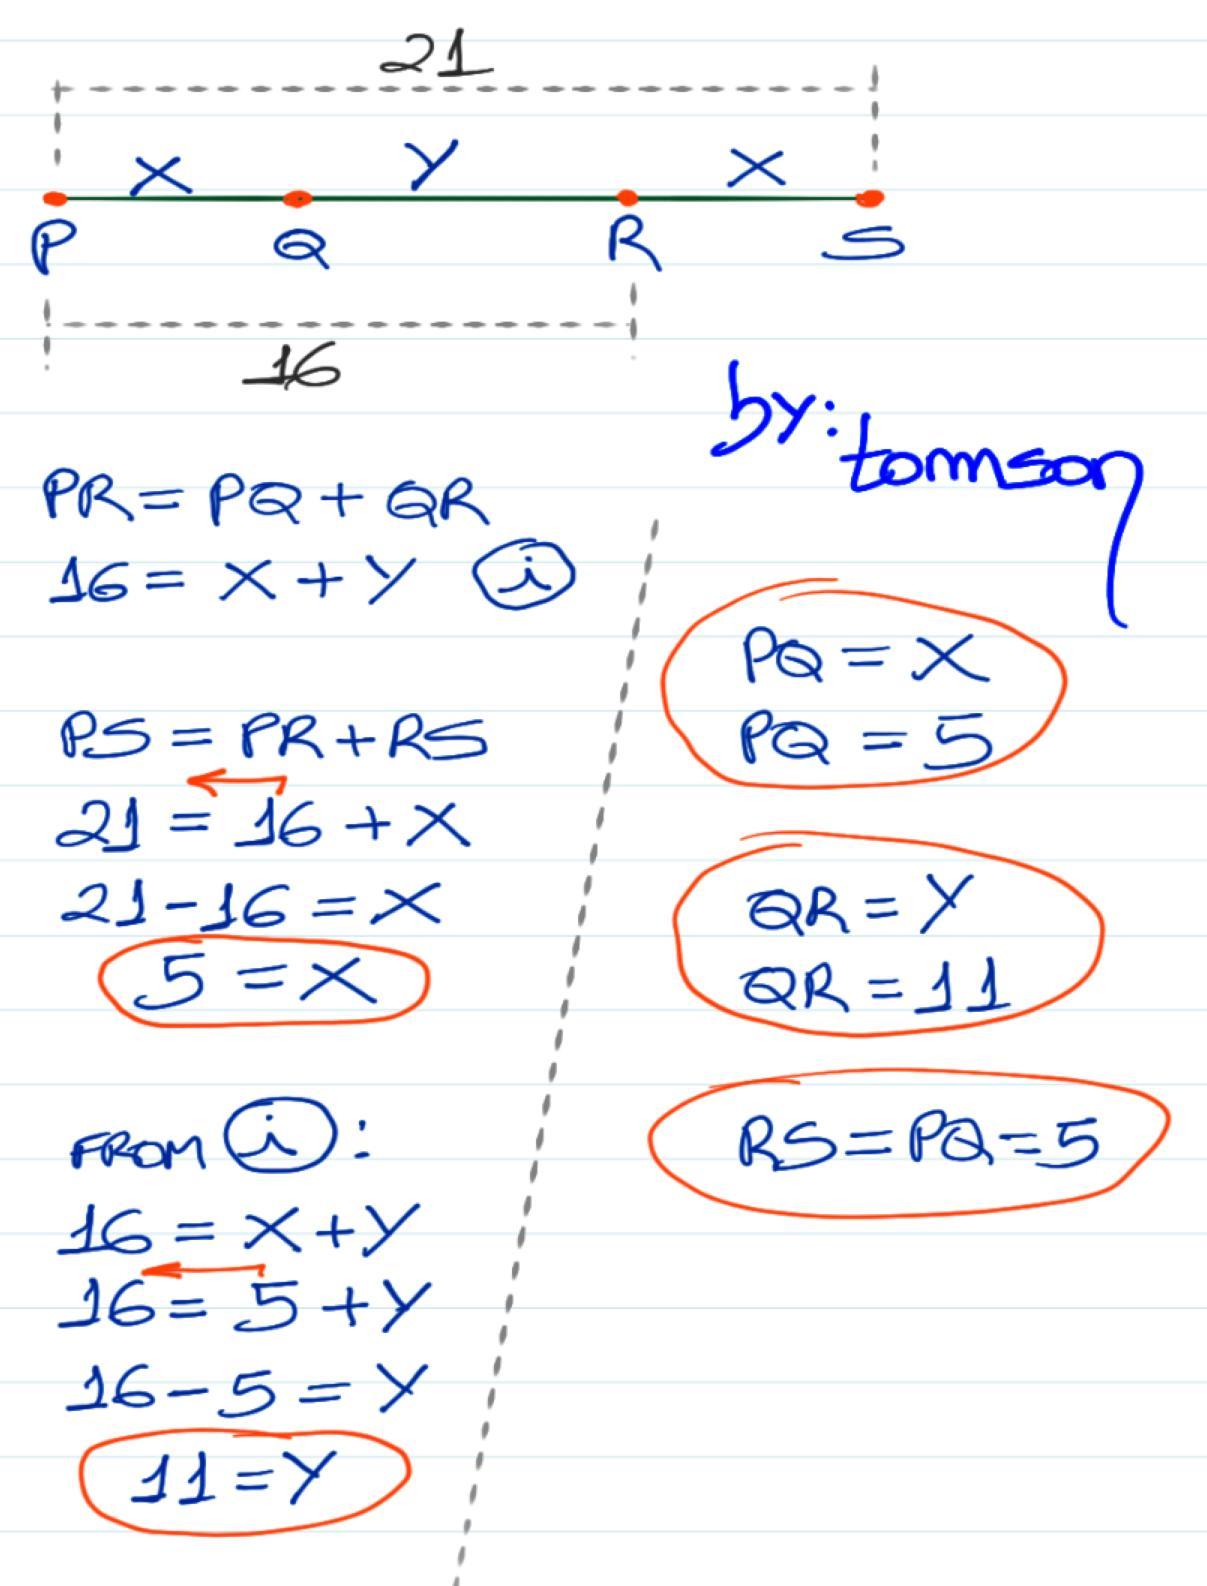 21
X Y X
P Q R S
16
by:
tomson
PR = PQ + QR
16 = X + Y i
PS = PR + RS
21 = 16 + X
21 - 16 = X
5 = X
FROM i :
16 = X + Y
16 = 5 + Y
16 - 5 = Y
11 = Y
PQ = X
PQ = 5
QR = Y
QR = 11
RS = PQ = 5